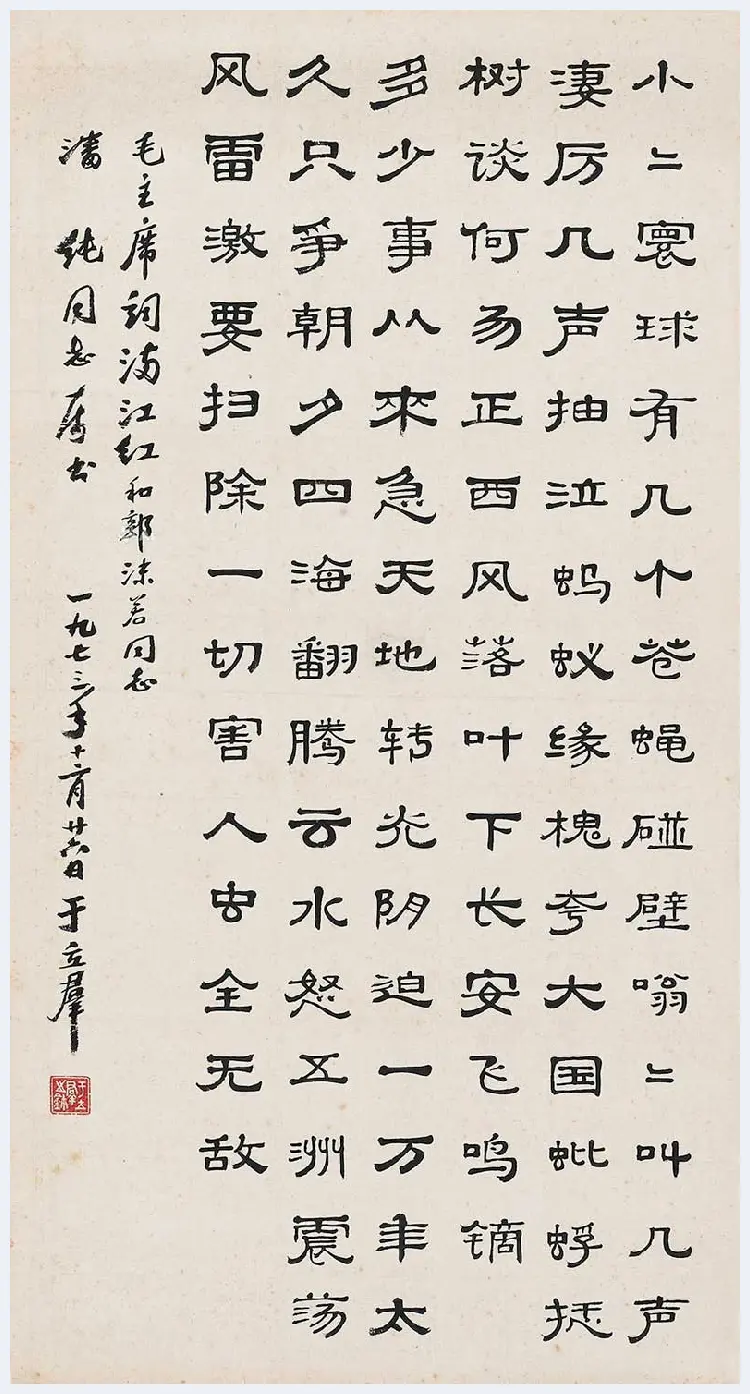 小〻寰球有几个苍蝇碰壁嗡〻叫几声
淒厉几声抽泣蚂蚁缘槐夸大国蚍蜉撼
树谈何易正西风落叶下长安飞鸣镝
多少事从來急天地转光阴迫一万年太
久只爭朝夕四海翻腾云水怒五洲震荡
风雷激要扫除一切害人虫全无敌
毛主席词满江红和郭沫若同志
潘纯同志属书 一九七三年十二月廿六日于立羣